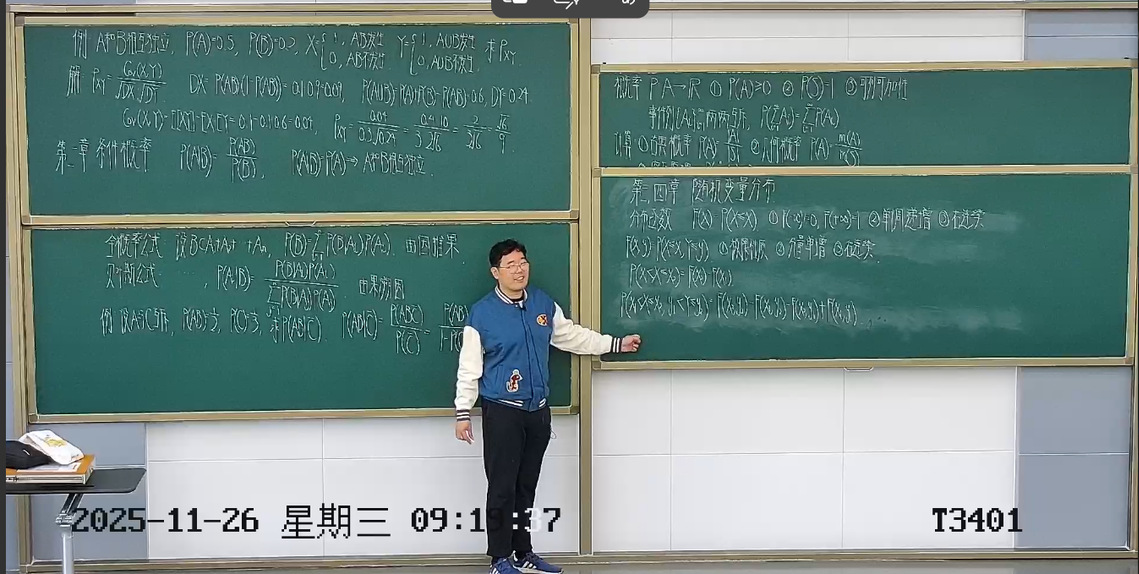 例 A和B相互独立, P(A)=0.5, P(B)=0.2, X={1, AB发生 0, AB不发生 Y={1, A∪B发生 0, A∪B不发生. 求ρXY
解 ρXY=Cov(X,Y)/√DX√DY DX=P(AB)(1-P(AB))=0.1×0.9=0.09, P(A∪B)=P(A)+P(B)-P(AB)=0.6, DY=0.24.
Cov(X,Y)=E(XY)-EXEY=0.1-0.1×0.6=0.04, ρXY=0.04/0.3√0.24=0.4√10/3√2.4=2/3√6=√6/9
第二章 条件概率 P(A|B)=P(AB)/P(B), P(A|B)=P(A)⇒A和B相互独立.
全概率公式 设B⊂A₁+A₂+…+Aₙ, P(B)=ΣP(B|Aᵢ)P(Aᵢ). 由因推果.
贝叶斯公式 P(Aᵢ|B)=P(B|Aᵢ)P(Aᵢ)/ΣP(B|Aᵢ)P(Aᵢ) 由果溯因
例 设A与C互斥, P(AB)=½, P(C)=⅓, 求P(AB|C̄). P(AB|C̄)=P(ABC̄)/P(C̄)=P(AB)/1-P(C)
概率 P: A→R ① P(A)≥0 ② P(S)=1 ③可列可加性
事件列{Aᵢ}两两互斥, P(ΣAᵢ)=ΣP(Aᵢ)
计算 ①古典概率 P(A)=|A|/|S| ②几何概率 P(A)=m(A)/m(S)
第二、四章 随机变量分布
分布函数 F(x)=P(X≤x) ①F(-∞)=0, F(+∞)=1 ②单调递增 ③右连续
F(x,y)=P(X≤x,Y≤y) ② ③右连续.
P(x₁<X≤x₂)=F(x₂)-F(x₁)
P(x₁<X≤x₂, y₁<Y≤y₂)=F(x₂,y₂)-F(x₁,y₂)-F(x₂,y₁)+F(x₁,y₁)
2025-11-26 星期三 09:19:37
T3401